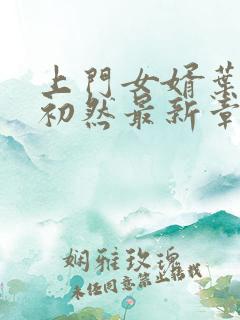 上門女婿葉
初然最新章
娴雅玫瑰
未经同意禁止转载